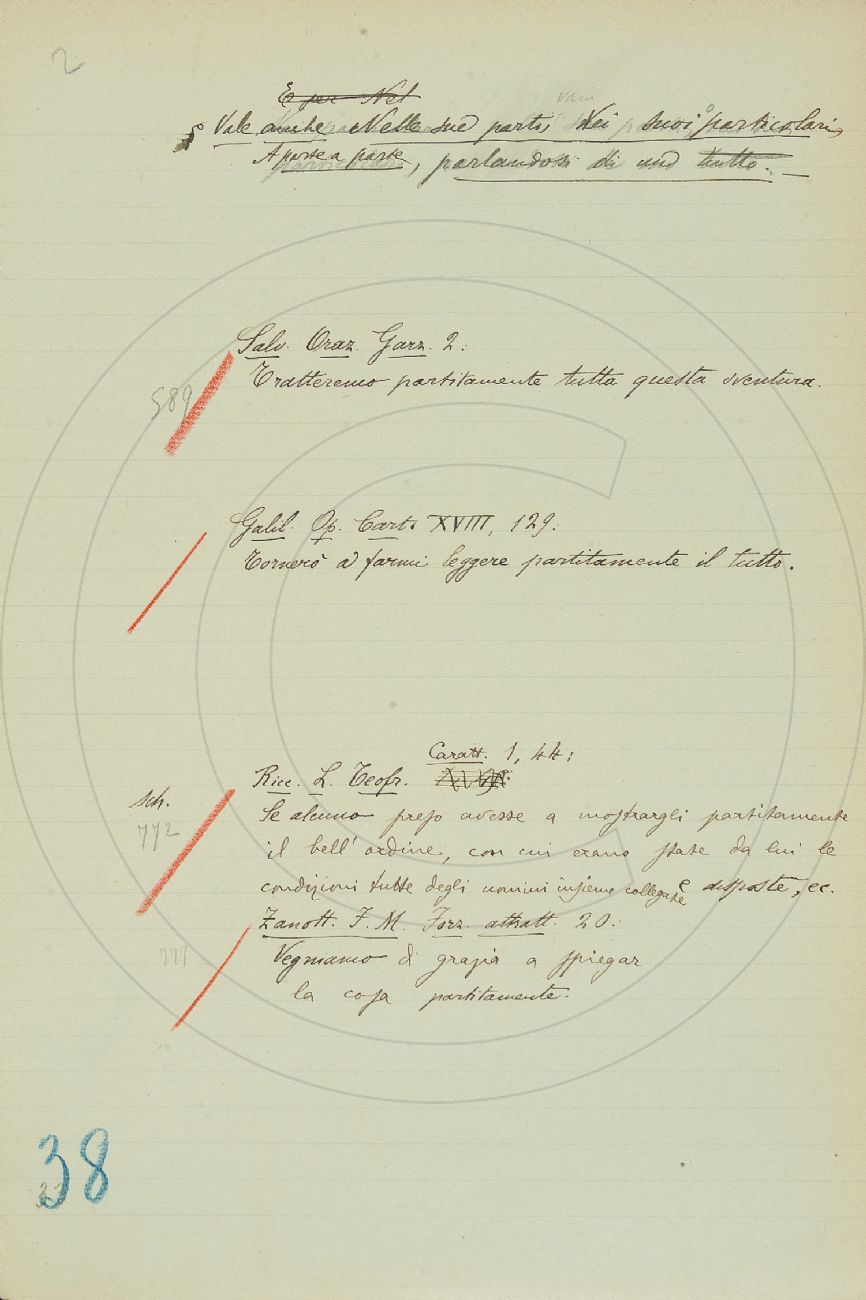 2
E per Nel
§ Vale anche Nelle sue parti, Nei suoi particolari,
A parte a parte, parlandosi di uno tutto.
Salv. Oraz. Garz. 2:
589 Tratteremo partitamente tutta questa sventura.
Galil. Op. Cart. XVIII, 129:
Tornerò a farmi leggere partitamente il tutto.
Caratt. 1, 44:
Ricc. L. Teofr.
sch.
772
Se alcuno preso avesse a mostrargli partitamente
il bell' ordine, con cui erano state da lui le
condizioni tutte degli uomini insieme collegate e disposte, ec.
Zanott. F. M. Forz. attratt. 20:
777 Vegniamo di grazia a spiegar
la cosa partitamente.
38